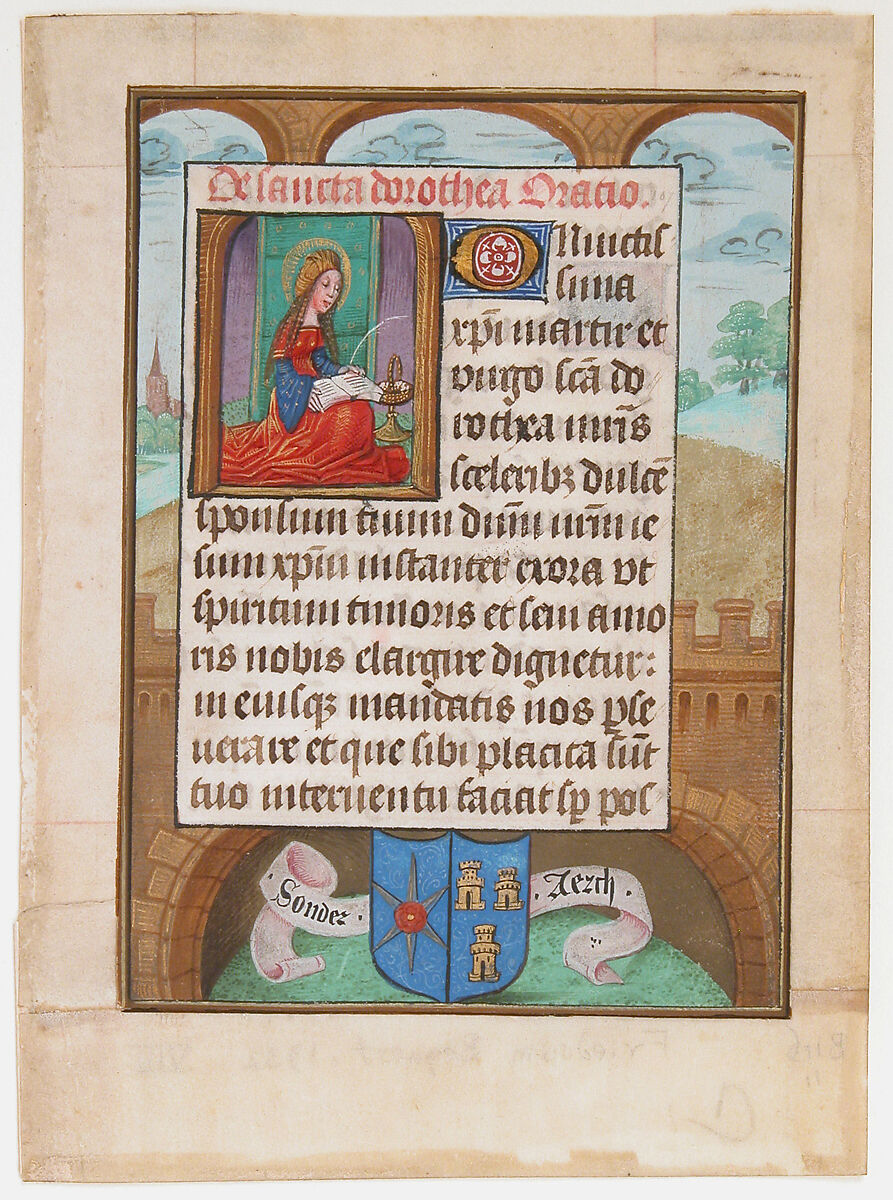 De sancta dorothea Oratio.
O Inuictis
sima
xp̄i martir et
virgo sc̄a do
rothea nr̄is
sceleribꝫ dulcē
sponsum tuum dn̄m nr̄m ie
sum xp̄m instanter exora vt
spiritum timoris et sem amo
ris nobis elargire dignetur:
in eiusqꝫ mandatis nos ꝑse
uerare et que sibi placita su̅t
tuo interuentu faciat sꝑ pos
Sondez.
Aerch.